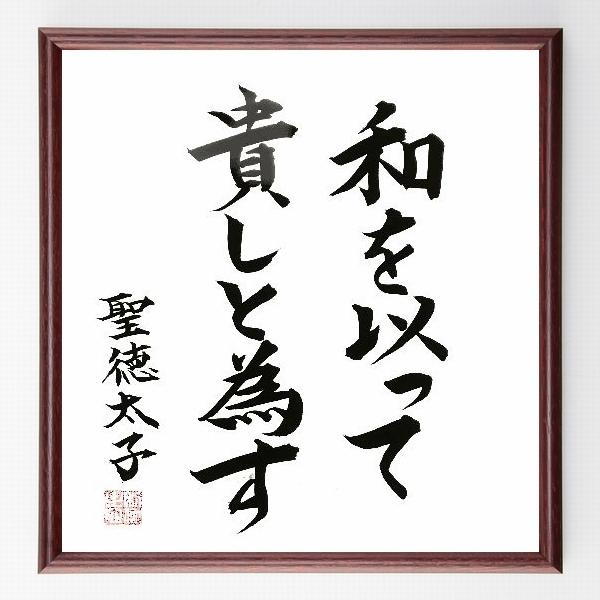 和を以って
貴しと為す
聖徳太子